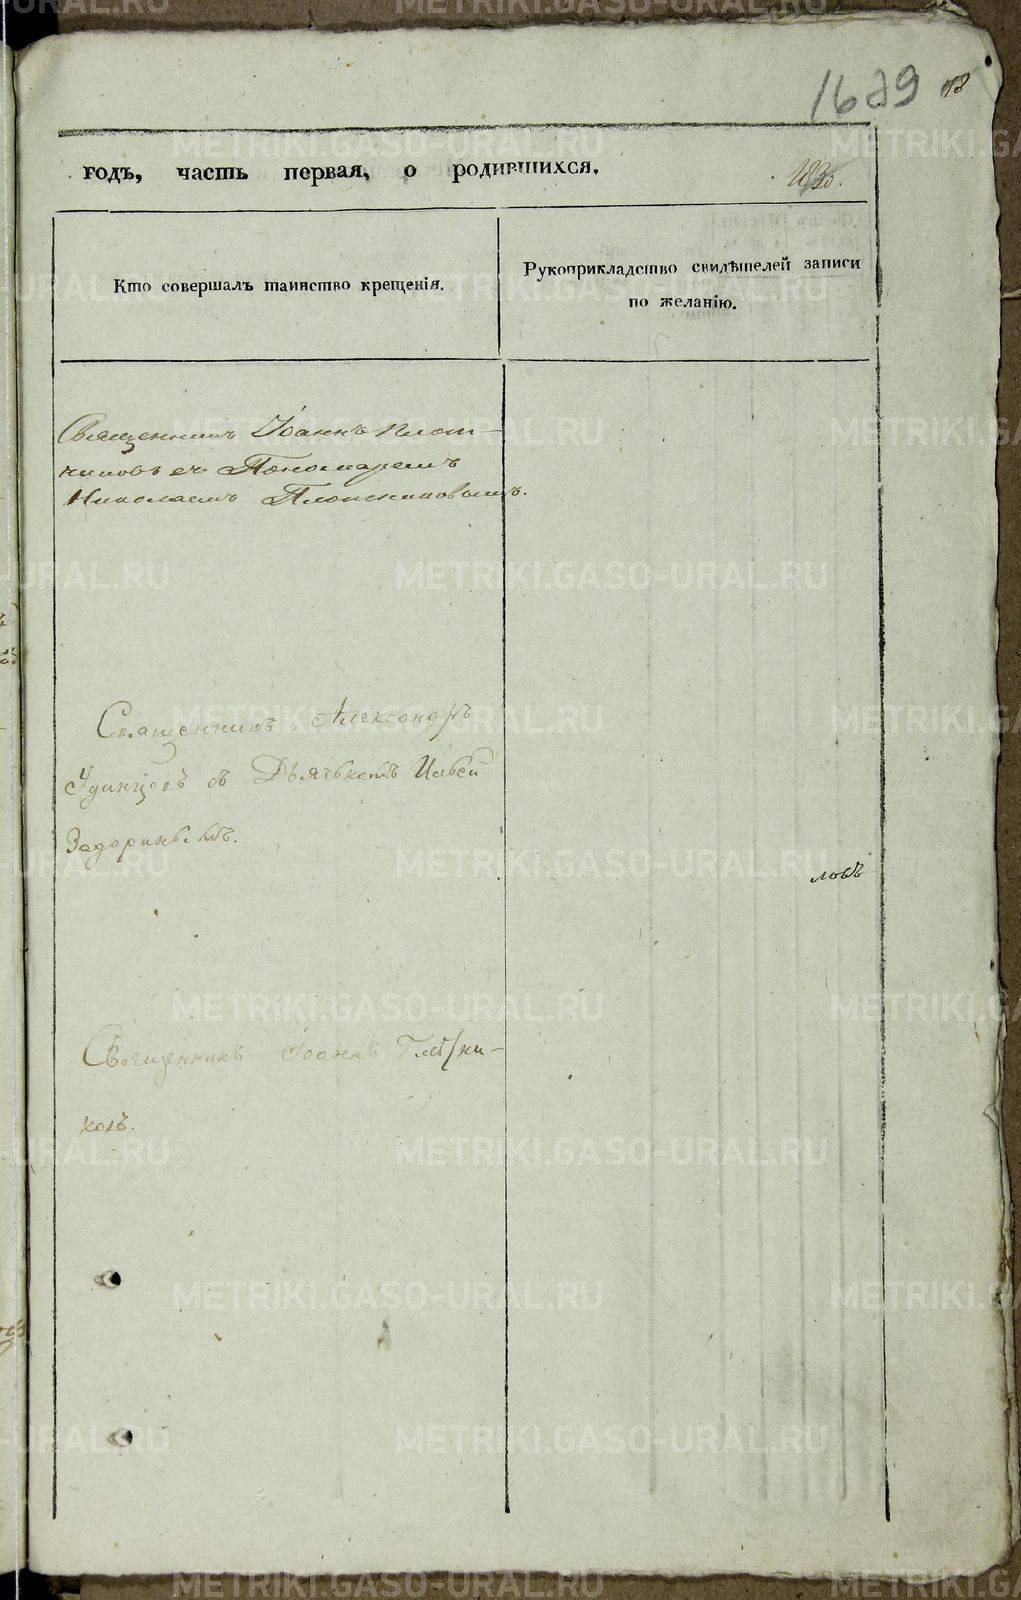 1629
годъ, часть первая, о родившихся.
Кто совершалъ таинство крещенія.
Рукоприкладство свидѣтелей записи
по желанію.
Священникъ Іоаннъ Плот-
никовъ съ Пономаремъ
Николаемъ Плотниковымъ.
Священникъ Александръ
Удинцовъ съ Дьячькомъ Ильей
Задоринымъ.
ловъ
Священникъ Іоаннъ Плотни-
ковъ.
METRIKI.GASO-URAL.RU